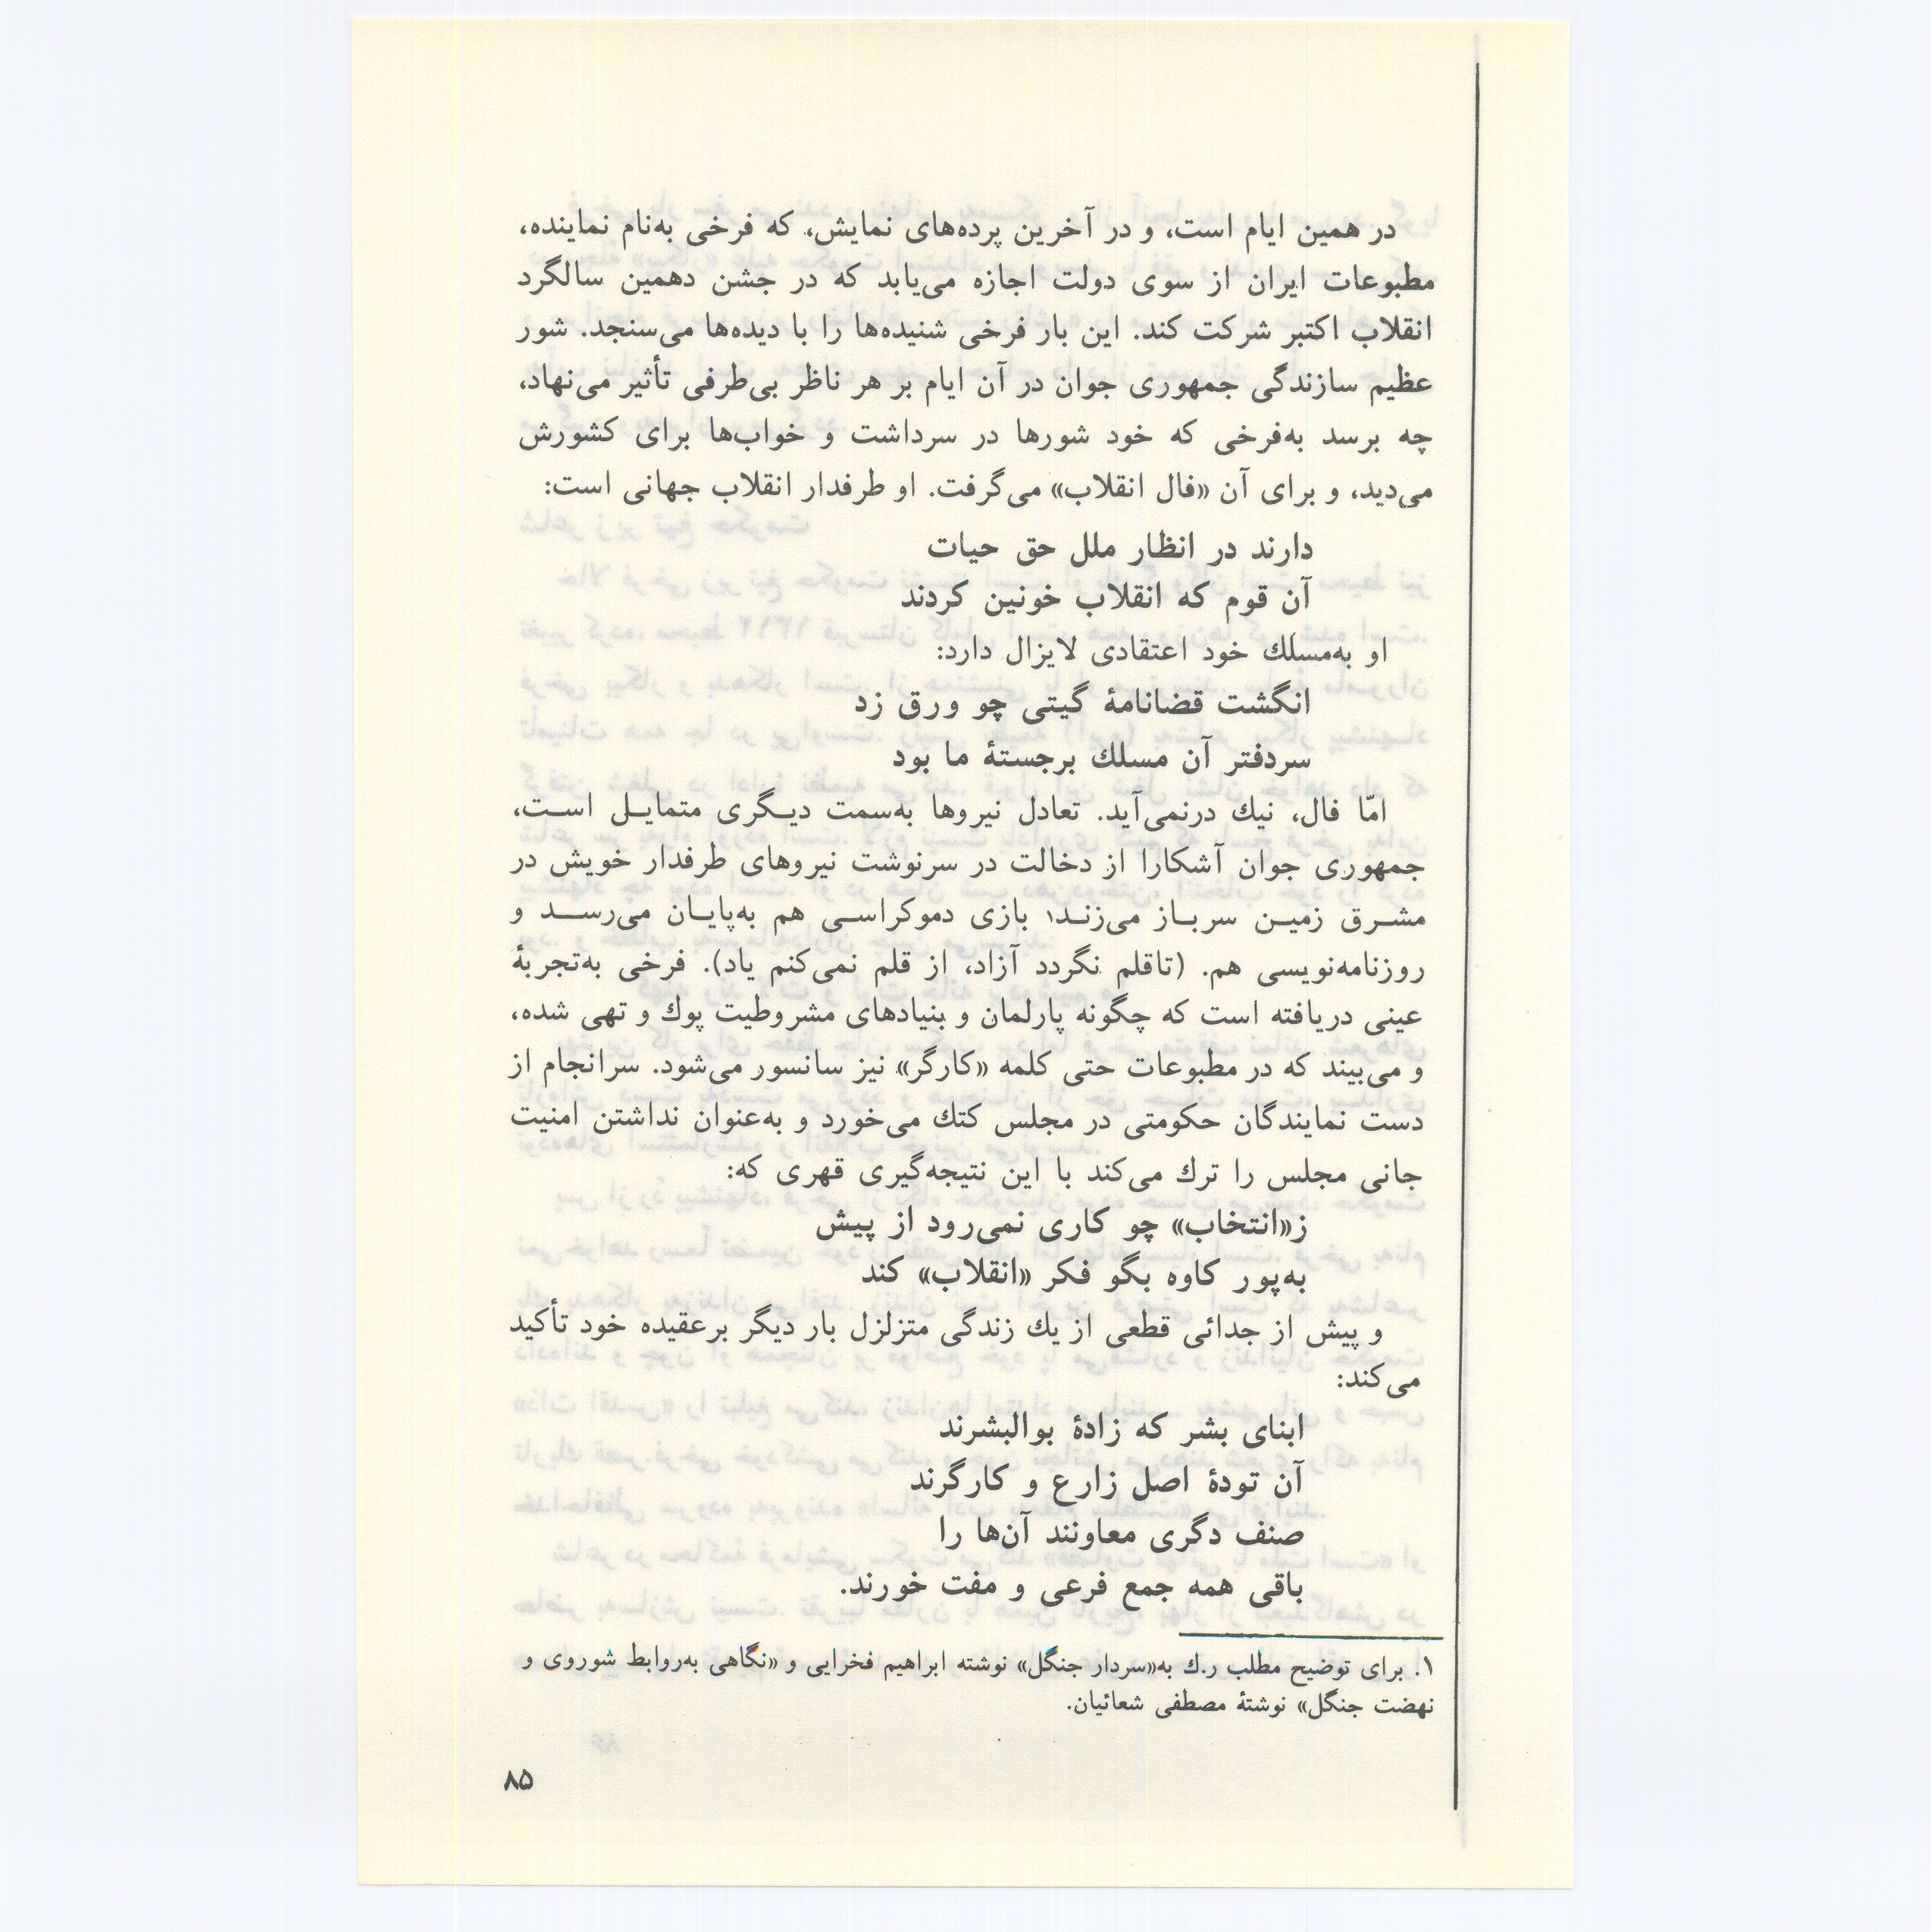 در همین ایام است، و در آخرین پرده‌های نمایش، که فرخی به‌نام نماینده،
مطبوعات ایران از سوی دولت اجازه می‌یابد که در جشن دهمین سالگرد
انقلاب اکتبر شرکت کند. این بار فرخی شنیده‌ها را با دیده‌ها می‌سنجد. شور
عظیم سازندگی جمهوری جوان در آن ایام بر هر ناظر بی‌طرفی تأثیر می‌نهاد،
چه برسد به‌فرخی که خود شورها در سرداشت و خواب‌ها برای کشورش
می‌دید، و برای آن «فال انقلاب» می‌گرفت. او طرفدار انقلاب جهانی است:
دارند در انظار ملل حق حیات
آن قوم که انقلاب خونین کردند
او به‌مسلك خود اعتقادی لایزال دارد:
انگشت قضانامهٔ گیتی چو ورق زد
سردفتر آن مسلك برجستهٔ ما بود
امّا فال، نیك درنمی‌آید. تعادل نیروها به‌سمت دیـگری متمایـل اسـت،
جمهوری جوان آشکارا از دخالت در سرنوشت نیروهای طرفدار خویش در
مشـرق زمیـن سربـاز می‌زنـد۱ بازی دموکراسـی هم به‌پایـان می‌رسـد و
روزنامه‌نویسی هم. (تاقلم نگردد آزاد، از قلم نمی‌کنم یاد). فرخی به‌تجربهٔ
عینی دریافته است که چگونه پارلمان و بنیادهای مشروطیت پوك و تهی شده،
و می‌بیند که در مطبوعات حتی کلمه «کارگر» نیز سانسور می‌شود. سرانجام از
دست نمایندگان حکومتی در مجلس کتك می‌خورد و به‌عنوان نداشتن امنیت
جانی مجلس را ترك می‌کند با این نتیجه‌گیری قهری که:
ز«انتخاب» چو کاری نمی‌رود از پیش
به‌پور کاوه بگو فکر «انقلاب» کند
و پیش از جدائی قطعی از یك زندگی متزلزل بار دیگر برعقیده خود تأکید
می‌کند:
ابنای بشر که زادهٔ بوالبشرند
آن تودهٔ اصل زارع و کارگرند
صنف دگری معاونند آن‌ها را
باقی همه جمع فرعی و مفت خورند.
۱. برای توضیح مطلب ر.ك به«سردار جنگل» نوشته ابراهیم فخرایی و «نگاهی به‌روابط شوروی و
نهضت جنگل» نوشتهٔ مصطفی شعائیان.
۸۵